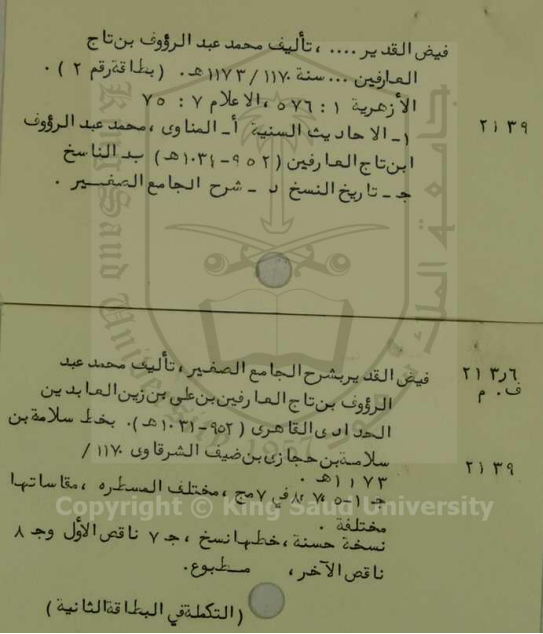 فيض القدير .... ، تأليف محمد عبد الرؤوف بن تاج
العارفين ... سنة ١١٧٠ / ١١٧٣ هـ . (بطاقة رقم ٢) .
الأزهرية ١ : ٥٧٦ ، الاعلام ٧ : ٧٥
٢١٣٩ ١- الاحاديث السنية أ- المناوى ، محمد عبد الرؤوف
ابن تاج العارفين (٩٥٢-١٠٣١هـ) بـ الناسخ
جـ - تاريخ النسخ د - شرح الجامع الصغير .
٢١٣٫٦ فيض القدير بشرح الجامع الصغير ، تأليف محمد عبد
ف . م الرؤوف بن تاج العارفين بن على بن زين العابدين
الحدادى القاهرى (٩٥٢-١٠٣١هـ) . بخط سلامة بن
٢١٣٩ سلامة بن حجازى بن ضيف الشرقاوى ١١٧٠ /
١١٧٣هـ .
جـ ١-٥ ، ٧ ، ٨ في ٧ مج ، مختلف المسطره ، مقاساتها
مختلفة .
نسخة حسنة ، خطها نسخ ، جـ ٧ ناقص الأول وجـ ٨
ناقص الآخر ، مطبوع .
(التكملة في البطاقة الثانية)
جامعة الملك
King Saud University
1957
Copyright © King Saud University